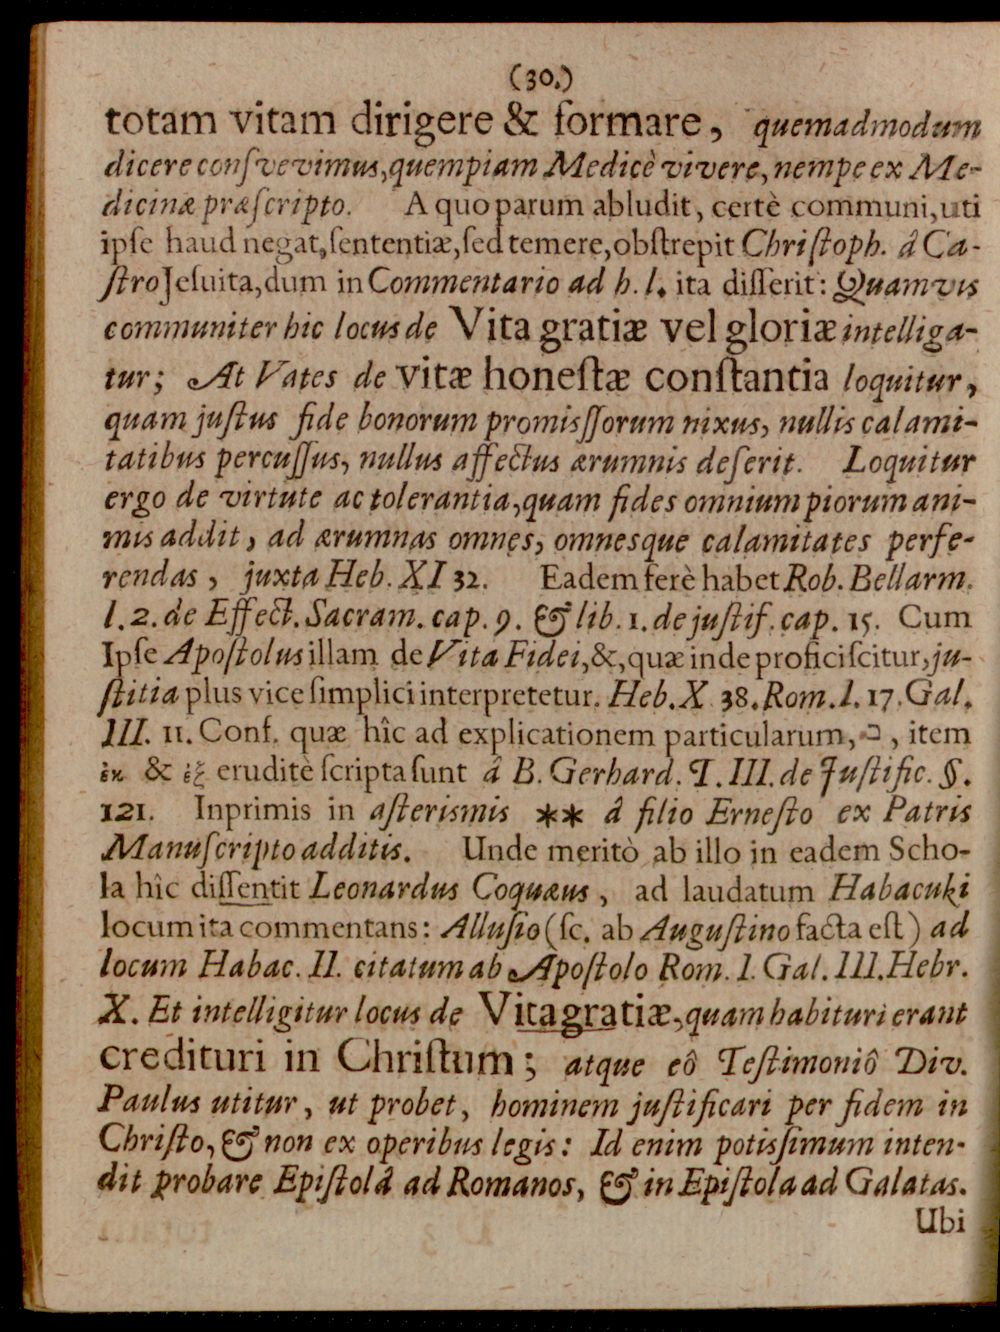 (30.)
totam vitam dirigere & formare, quemadmodum
dicere consvevimus, quempiam Medicè vivere, nempe ex Me-
dicinæ præscripto. A quo parum abludit, certè communi, uti
ipse haud negat, sententiæ, sed temere, obstrepit Christoph. â Ca-
stro Jesuita, dum in Commentario ad h. l. ita disserit: Quamvis
communiter hic locus de Vita gratiæ vel gloriæ intelliga-
tur; At Vates de vitæ honestæ constantia loquitur,
quam justus fide bonorum promissorum nixus, nullis calami-
tatibus percussus, nullus affectus ærumnis deserit. Loquitur
ergo de virtute ac tolerantia, quam fides omnium piorum ani-
mis addit, ad ærumnas omnes, omnesque calamitates perfe-
rendas, juxta Heb. XI 32. Eadem ferè habet Rob. Bellarm.
l. 2. de Effect. Sacram. cap. 9. & lib. 1. de justif. cap. 15. Cum
Ipse Apostolus illam de Vita Fidei, &, quæ inde proficiscitur, ju-
stitia plus vice simplici interpretetur. Heb. X 38. Rom. I. 17. Gal.
III. 11. Conf. quæ hîc ad explicationem particularum, ב, item
ἐκ & ἐξ eruditè scripta sunt â B. Gerhard. T. III. de Justific. §.
121. Inprimis in asterismis ** â filio Ernesto ex Patris
Manuscripto additis. Unde meritò ab illo in eadem Scho-
la hîc dissentit Leonardus Coquæus, ad laudatum Habacuki
locum ita commentans: Allusio (sc. ab Augustino facta est) ad
locum Habac. II. citatum ab Apostolo Rom. I. Gal. III. Hebr.
X. Et intelligitur locus de Vita gratiæ, quam habituri erant
credituri in Christum; atque eô Testimoniô Div.
Paulus utitur, ut probet, hominem justificari per fidem in
Christo, & non ex operibus legis: Id enim potissimum inten-
dit probare Epistolâ ad Romanos, & in Epistola ad Galatas.
Ubi